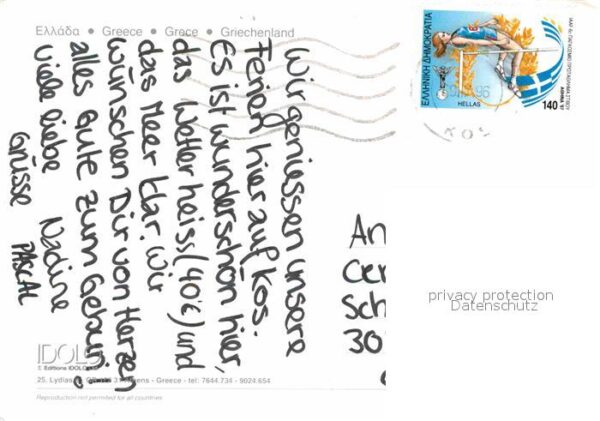 Ελλάδα • Greece • Grèce • Griechenland
Wir geniessen unsere
Ferien hier auf Kos.
Es ist wunderschön hier,
das Wetter heiss (40°C) und
das Meer klar. Wir
wünschen Dir von Herzen
alles Gute zum Geburi!
Viele liebe
Grüsse
Nadine
PASCAL
ΕΛΛΗΝΙΚΗ ΔΗΜΟΚΡΑΤΙΑ
HELLAS
140
96
An
Cer
Sch
30
privacy protection
Datenschutz
IDOL
© Editions IDOL
25. Lydias - Greece - tel: 7644.734 - 9024.654
Reproduction not permited for all countries